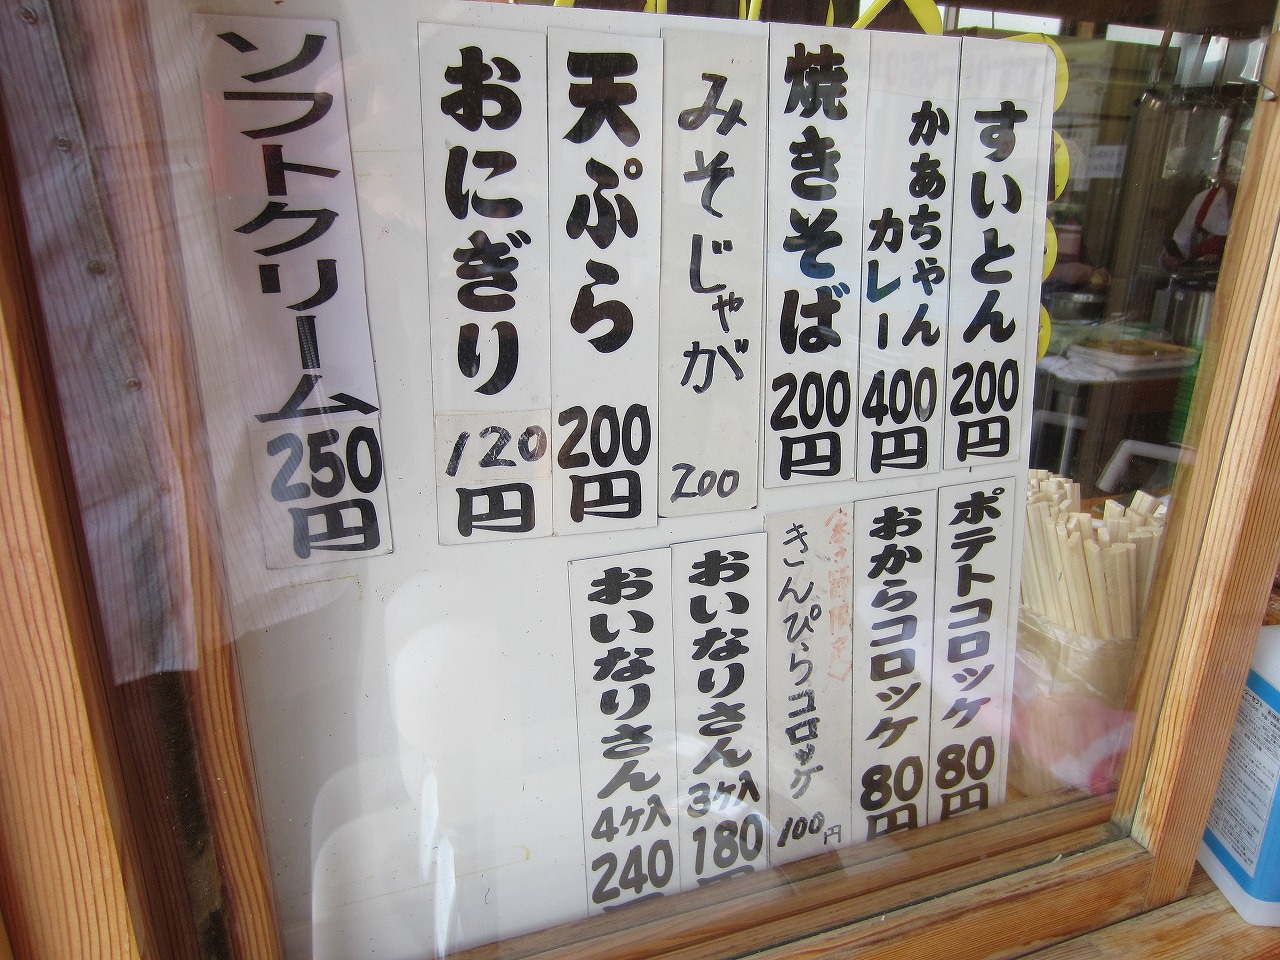 すいとん 200円
かあちゃん
カレー 400円
焼きそば 200円
みそじゃが 200
天ぷら 200円
おにぎり 120円
ソフトクリーム 250円
ポテトコロッケ 80円
おからコロッケ 80円
きんぴらコロッケ 100円
おいなりさん 3ケ入 180円
おいなりさん 4ケ入 240円